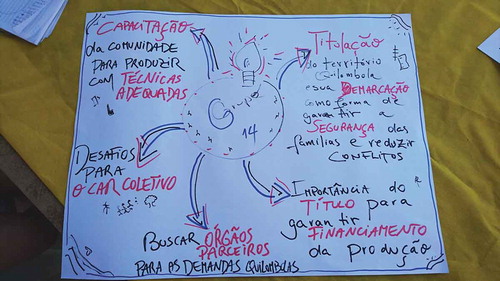 CAPACITAÇÃO
da COMUNIDADE
PARA PRODUZIR
COM TÉCNICAS
ADEQUADAS
Titulação
do território
Quilombola
e sua DEMARCAÇÃO
como forma de
garantir a
SEGURANÇA das
famílias e reduzir
CONFLITOS
Grupo
14
DESAFIOS
PARA
O CAR COLETIVO
IMPORTÂNCIA do
TÍTULO para
garantir
FINANCIAMENTO
da produção
BUSCAR ÓRGÃOS
PARCEIROS
PARA AS DEMANDAS QUILOMBOLAS